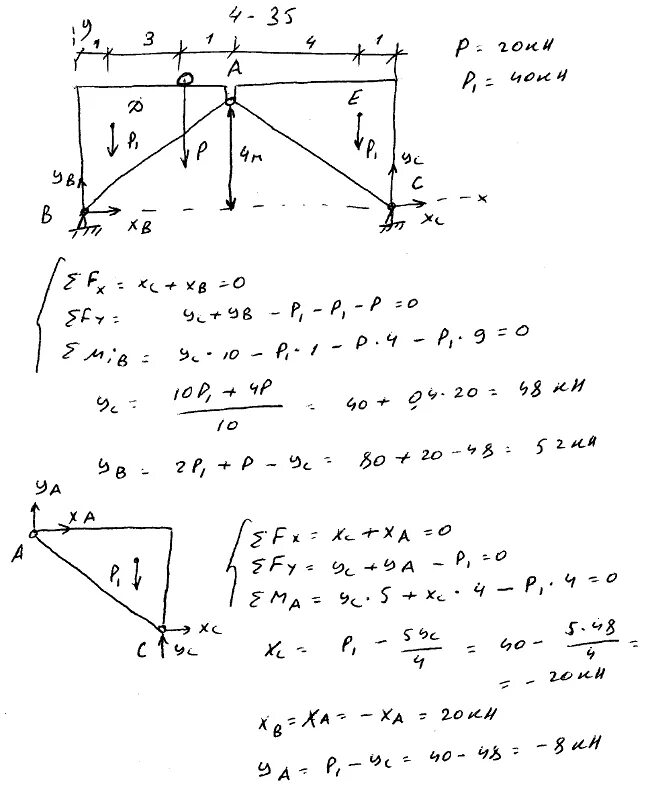 4-35
y
1 3 1 4 1
P = 20кН
P₁ = 40кН
A
D E
P₁ P 4м P₁
yB yC
B C x
xB xC
ΣFx = xC + xB = 0
ΣFy = yC + yB - P₁ - P₁ - P = 0
ΣMiB = yC · 10 - P₁ · 1 - P · 4 - P₁ · 9 = 0
yC = (10P₁ + 4P)/10 = 40 + 0,4 · 20 = 48 кН
yB = 2P₁ + P - yC = 80 + 20 - 48 = 52кН
yA
xA
A
P₁
C yC xC
ΣFx = xC + xA = 0
ΣFy = yC + yA - P₁ = 0
ΣMA = yC · 5 + xC · 4 - P₁ · 4 = 0
xC = P₁ - 5yC/4 = 40 - 5·48/4 =
= - 20кН
xB = XA = - xA = 20кН
yA = P₁ - yC = 40 - 48 = -8кН